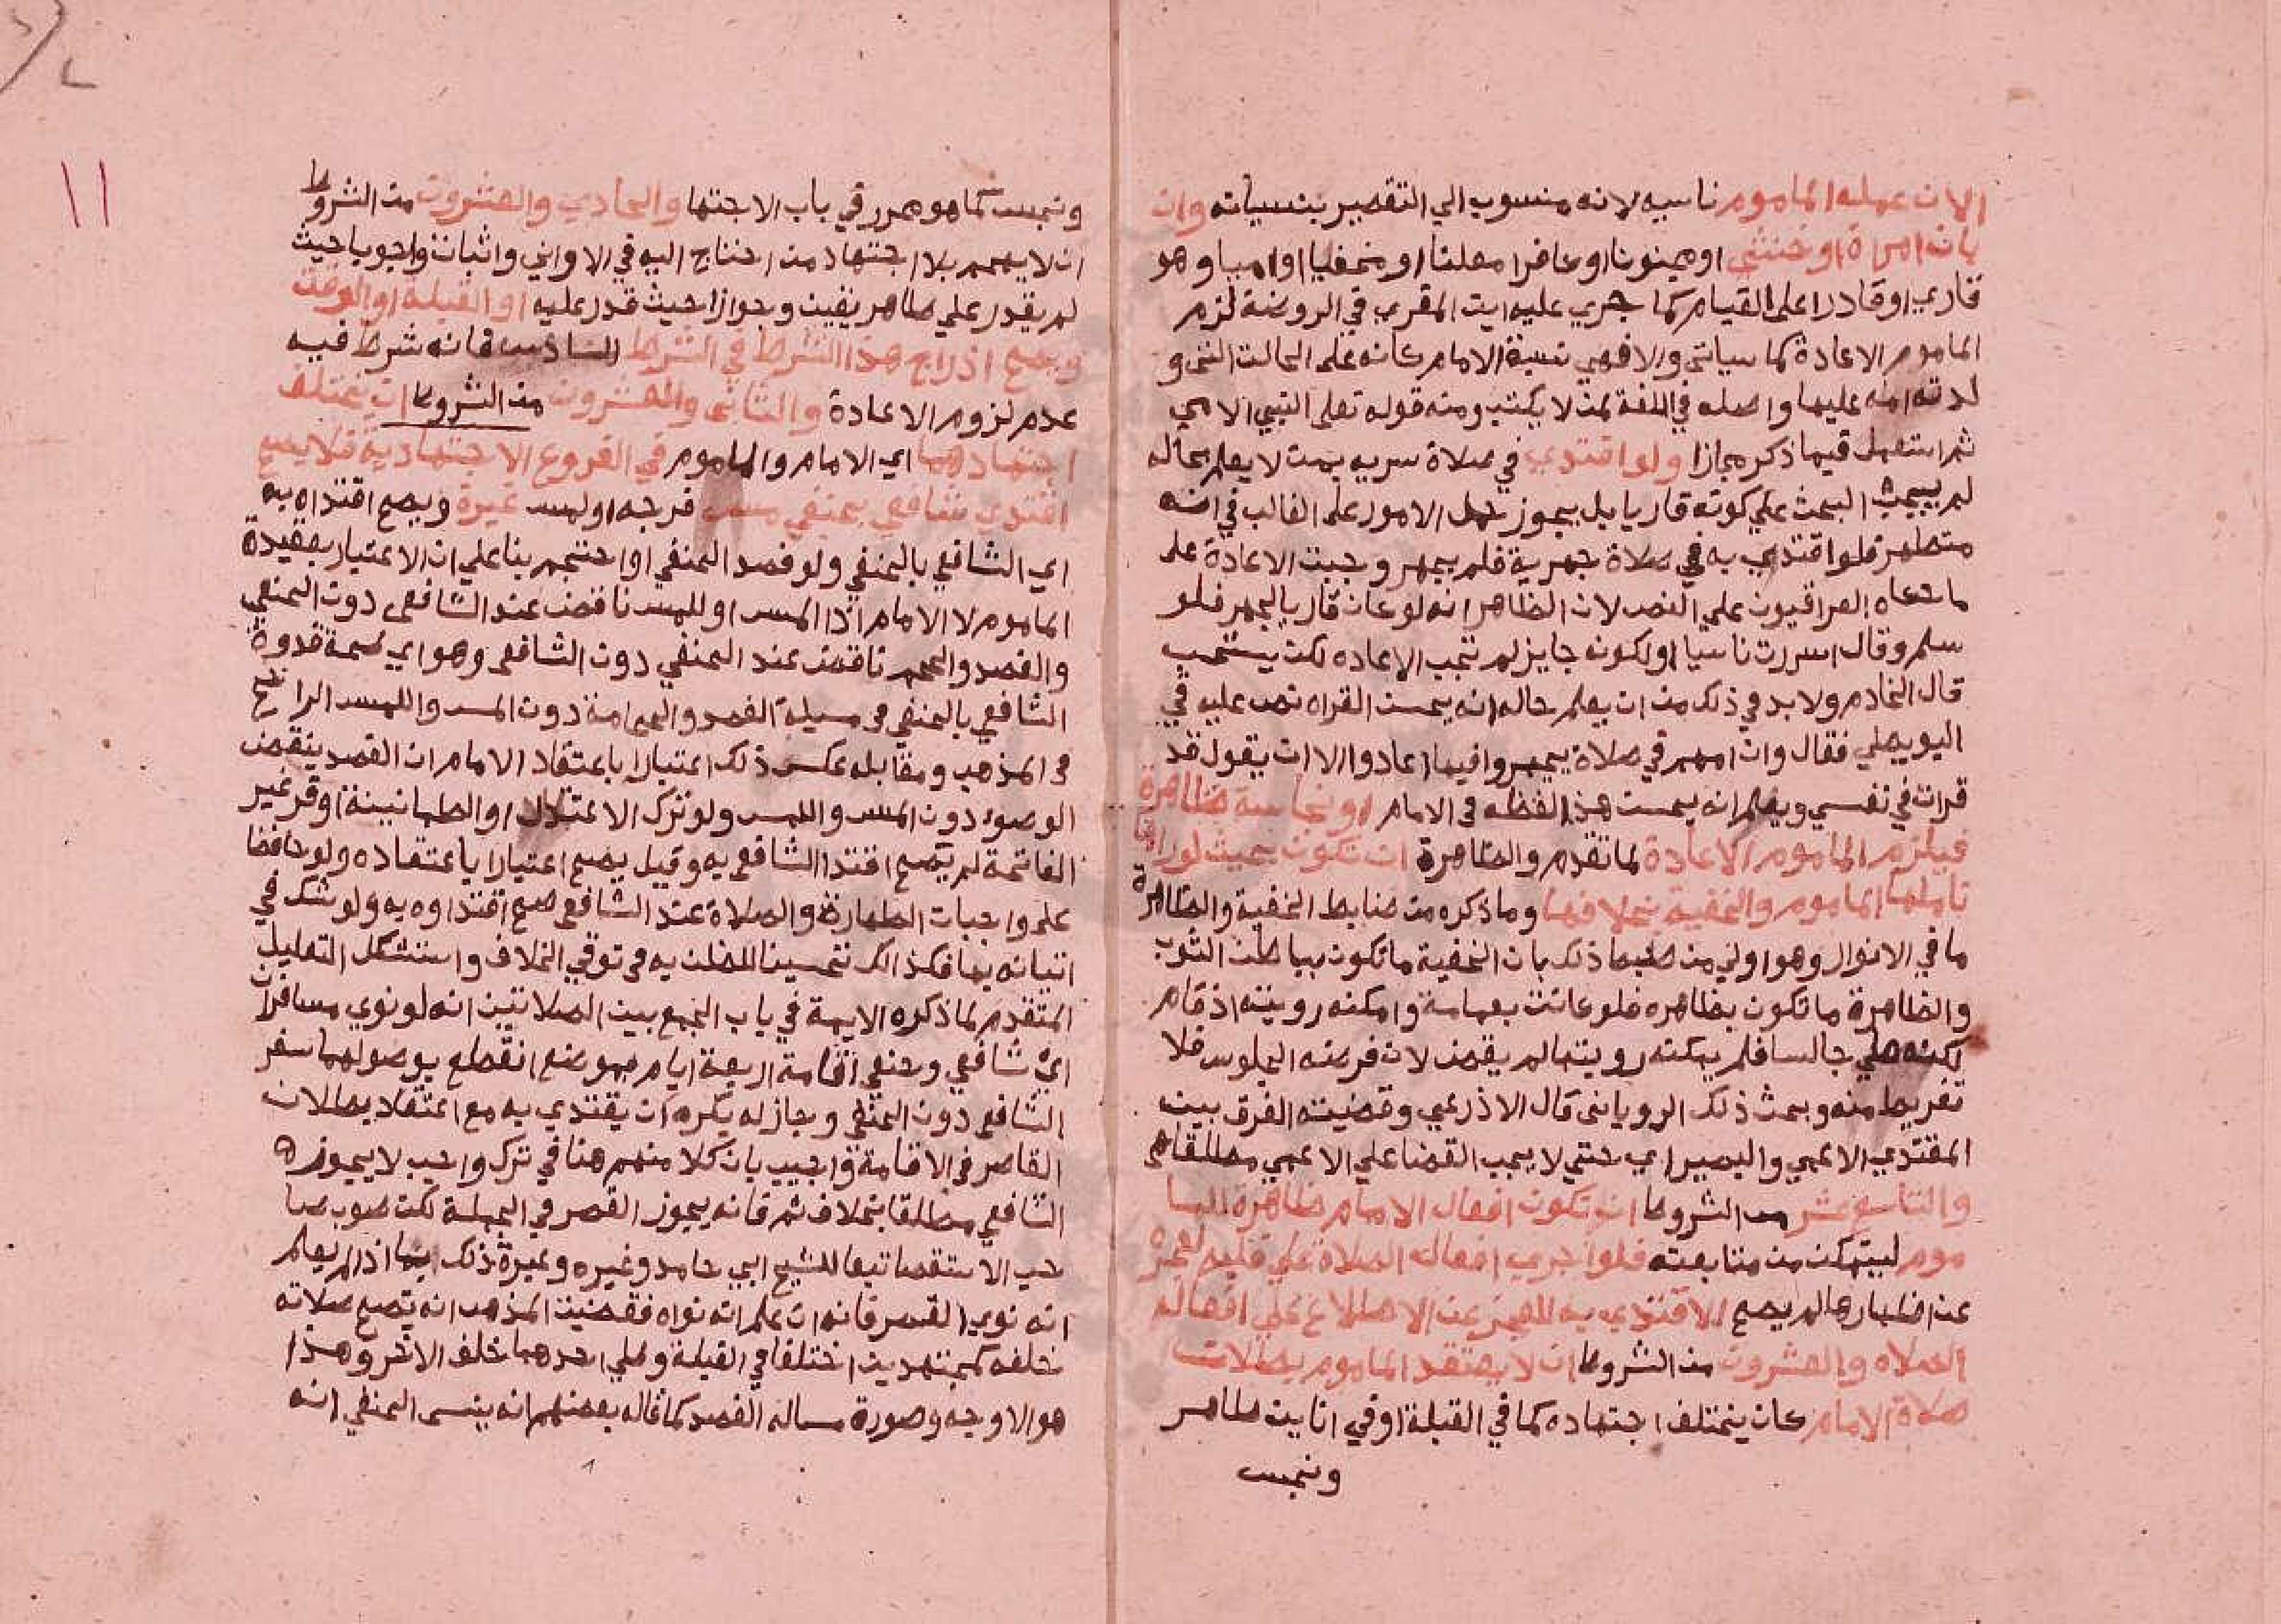 الا ان عمله الماموم ناسيه لانه منسوب الي التقصير بنسيانه وان
بانه امراة او خنثي او مجنونا او كافرا معلنا او مخفيا او اميا وهو
قاري او قادرا على القيام كما جري عليه ابن المقري في الروضة لزم
الماموم الاعادة كما سياتي والامي نسبة الامام كانه على الحالت التي و
لدته امه عليها واصله في اللغة لمن لا يكتب ومنه قوله تعلى النبي الامي
ثم استعمل فيما ذكر مجازا ولو اقتدي في صلاة سريه بمن لا يعلم بحاله
لم يجب البحث علي كونه قاريا بل يجوز حمل الامور على الغالب في انه
متطهر فلو اقتدي به في صلاة جهرية فلم يجهر وجبت الاعادة على
ما حكاه العراقيون على النص لان الظاهر انه لو كان قاريا لجهر فلو
سلم وقال اسررت ناسيا او لكونه جايز لم تجب الاعاده لكن يستحب
قال الخادم ولا بد في ذلك من ان يعلم حاله انه يحسن القراه نص عليه في
البويطي فقال وان امهم في صلاة يجهروا فيها اعادوا الا ان يقول قد
قرات في نفسي ويعلم انه يحسن هذا لفظه في الامام او نجاسة ظاهرة
فيلزم الماموم الاعادة لما تقدم والظاهرة ان تكون بحيث لو
تاملها الماموم والخفية بخلافها وما ذكره من ضابط الخفية والظاهرة
ما في الانوار وهو اولي من ضبط ذلك بان الخفية ما تكون بباطن الثوب
والظاهرة ما تكون بظاهره فلو كانت بعمامة وامكنه رويته اذ قام
لكنه صلي جالسا فلم يمكنه رويتها لم يقض لان فرضه الجلوس فلا
تفريط منه وبحث ذلك الروياني قال الاذرعي وقضيته الفرق بين
المقتدي الاعمي والبصير اي حتي لا يجب القضا علي الاعمي مطلقا هي
والتاسع عشر من الشروط ان تكون افعال الامام ظاهرة للما
موم ليتمكن من متابعته فلو اجري افعاله الصلاة علي قلبه لعجزه
عن اظهارها لم يصح الاقتدي به للعجز عن الاطلاع علي افعاله
الصلاه والعشرون من الشروط ان لا يعتقد الماموم بطلان
صلاة الامام كان يختلف اجتهاده كما في القبلة او في انا يين طاهر
ونجس
ونجس كما هو محرر في باب الاجتهاد والحادي والعشرون من الشروط
ان لا يهجم بلا اجتهاد من احتاج اليه في الاواني واثبات واجوبا حيث
لم يقدر علي طاهر يقين وجوازا حيث قدر عليه او القبلة او الوقت
وبصح اذراج هذا الشرط في الشرط السادس فانه شرط فيه
عدم لزوم الاعادة والثاني والعشرون من الشروط ان يختلف
اجتهادهما اي الامام والماموم في الفروع الاجتهادية فلا يصح
اقتدي شافعي بحنفي مس فرجه او لمس غيره ويصح اقتداه به
اي الشافعي بالحنفي ولو فصد الحنفي او احتجم بنا علي ان الاعتبار بعقيدة
الماموم لا الامام اذا المس او للمس ناقض عند الشافعي دون الحنفي
والفصد والحجم ناقض عند الحنفي دون الشافعي وهو اي صحة قدوة
الشافعي بالحنفي في مسيلة الفصد والحجامة دون المس واللمس الراجح
في المذهب ومقابله عكس ذلك اعتبارا باعتقاد الامام ان الفصد ينقض
الوضوء دون المس واللمس ولو ترك الاعتدال او الطمانينة او قرء غير
الفاتحة لم يصح اقتدا الشافعي به وقيل يصح اعتبارا باعتقاده ولو حافظا
على واجبات الطهارة والصلاة عند الشافعي صح اقتداوه به ولو شك في
اتيانه بها فكذالك تحسينا للظن به في توقي الخلاف واستشكل التعليل
المتقدم لما ذكره الايمة في باب الجمع بين الصلاتين انه لو نوي مسافران
اي شافعي وحنفي اقامة اربعة ايام بموضع انقطع بوصولهما سفر
الشافعي دون الحنفي وجاز له بكره ان يقتدي به مع اعتقاد بطلان
القاصر في الاقامة واجيب بان كلا منهم هنا في ترك واجب لا يجوزه
الشافعي مطلقا بخلاف ثم فانه يجوز القصر في الجملة لكن صوب صا
حب الاستقصا تبعا للشيخ ابي حامد وغيره وغيرة ذلك ايضا اذا لم يعلم
انه نوي القصر فانه ان علم انه نواه فقضية المذهب انه تصح صلاته
خلفه كمجتهدين اختلفا في القبلة وصلي احدهما خلف الاخر وهذا
هو الاوجه وصورة مسالة الفصد كما قاله بعضهم انه ينسى الحنفي انه
١١